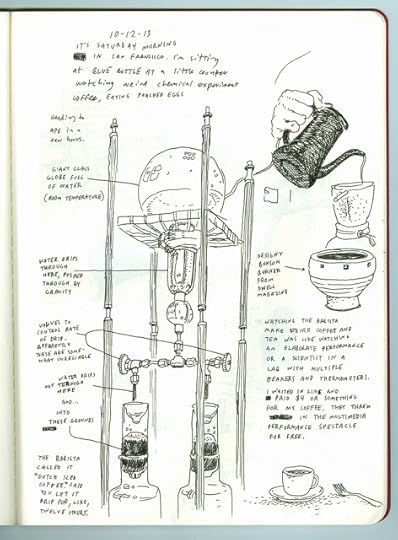 10-12-13
IT'S SATURDAY MORNING
IN SAN FRANCISCO. I'm sitting
at BLUE BOTTLE AT a little counter
watching weird chemical experiment
COFFEE, EATING POACHED EGGS
Heading to
APE in a
few hours.
GIANT GLASS
GLOBE FULL OF
OF WATER
(ROOM TEMPERATURE)
WATER DRIPS
THROUGH
HERE, PUSHED
THROUGH BY
GRAVITY
VALVES TO
CONTROL RATE
OF DRIP.
APPARENTLY
THESE ARE SOME-
WHAT UNRELIABLE
WATER DRIPS
OUT THROUGH
HERE
AND...
INTO
THESE GROUNDS
THE BARISTA
CALLED IT
"DUTCH ICED
COFFEE." SAID
YOU LET IT
DRIP FOR, LIKE,
TWELVE HOURS.
DESIGNY
BUNSON
BURNER
FROM
DWELL
MAGAZINE
WATCHING THE BARISTA
MAKE WEIRD COFFEE AND
TEA WAS LIKE WATCHING
AN ELABORATE PERFORMANCE
OR A SCIENTIST IN A
LAB WITH MULTIPLE
BEAKERS AND THERMOMETERS.
I WAITED IN LINE AND
PAID $4 OR SOMETHING
FOR MY COFFEE, THEY THREW
IN THE MULTIMEDIA
PERFORMANCE SPECTACLE
FOR FREE.